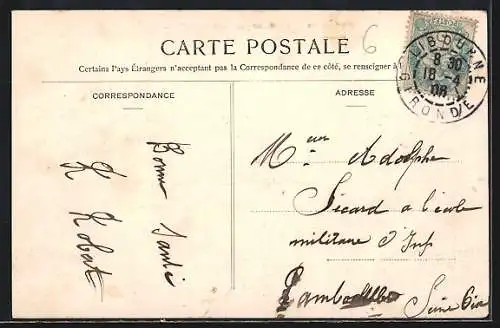 CARTE POSTALE
6
Certains Pays Étrangers n'acceptant pas la Correspondance de ce côté, se renseigner à
CORRESPONDANCE
ADRESSE
LIBOURNE
8 30
16 -4
06
GIRONDE
Bonne Santé
K Kobat
Adolphe
Sicard a l'école
militaire d'Inf
Seine